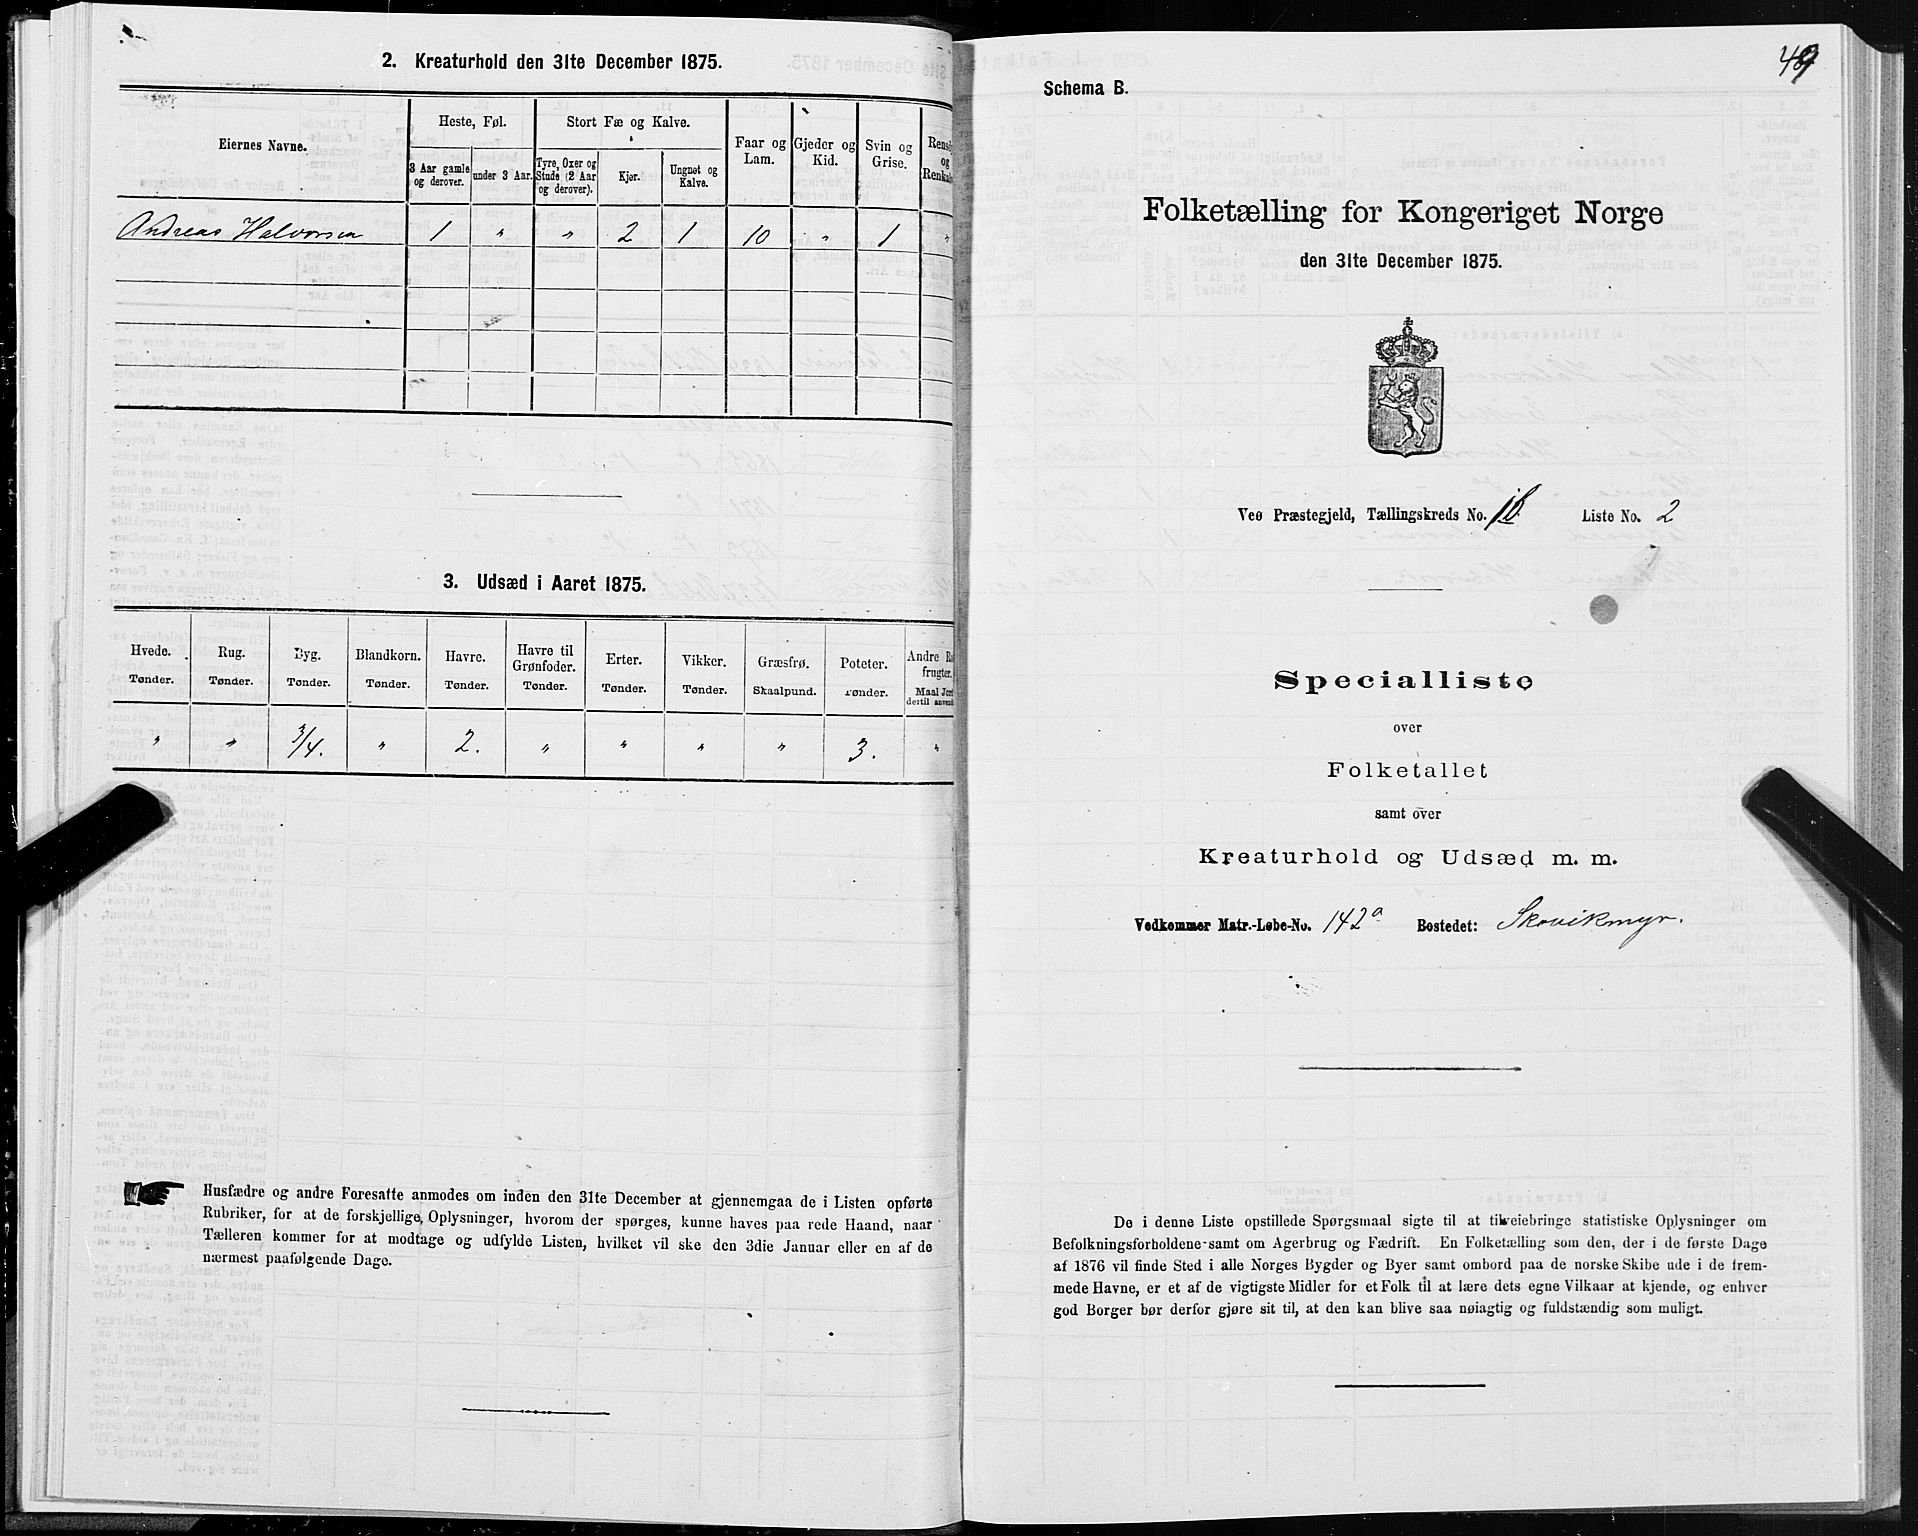 2. Kreaturhold den 31te December 1875.
Eiernes Navne.
Heste, Føl.
Stort Fæ og Kalve.
Faar og Lam.
Gjeder og Kid.
Svin og Grise.
3 Aar gamle og derover.
under 3 Aar.
Tyre, Oxer og Stude (2 Aar og derover).
Kjør.
Ungnøt og Kalve.
Andreas Halvorsen 1 " " 2 1 10 " 1 "
3. Udsæd i Aaret 1875.
Hvede. Rug. Byg. Blandkorn. Havre. Havre til Grønfoder. Erter. Vikker. Græsfrø. Poteter. Andre
frugter.
Tønder. Tønder. Tønder. Tønder. Tønder. Tønder. Tønder. Tønder. Skaalpund. Tønder. Maal
dertil
" " 3/4. " 2. " " " " 3. "
Husfædre og andre Foresatte anmodes om inden den 31te December at gjennemgaa de i Listen opførte
Rubriker, for at de forskjellige Oplysninger, hvorom der spørges, kunne haves paa rede Haand, naar
Tælleren kommer for at modtage og udfylde Listen, hvilket vil ske den 3die Januar eller en af de
nærmest paafølgende Dage.
49
Schema B.
Folketælling for Kongeriget Norge
den 31te December 1875.
Veø Præstegjeld, Tællingskreds No. Liste No. 2
Specialliste
over
Folketallet
samt over
Kreaturhold og Udsæd m. m.
Vedkommer Matr.-Løbe-No. 142a Bostedet: Skovikmyr.
De i denne Liste opstillede Spørgsmaal sigte til at tilveiebringe statistiske Oplysninger om
Befolkningsforholdene samt om Agerbrug og Fædrift. En Folketælling som den, der i de første Dage
af 1876 vil finde Sted i alle Norges Bygder og Byer samt ombord paa de norske Skibe ude i de frem-
mede Havne, er et af de vigtigste Midler for et Folk til at lære dets egne Vilkaar at kjende, og enhver
god Borger bør derfor gjøre sit til, at den kan blive saa nøiagtig og fuldstændig som muligt.